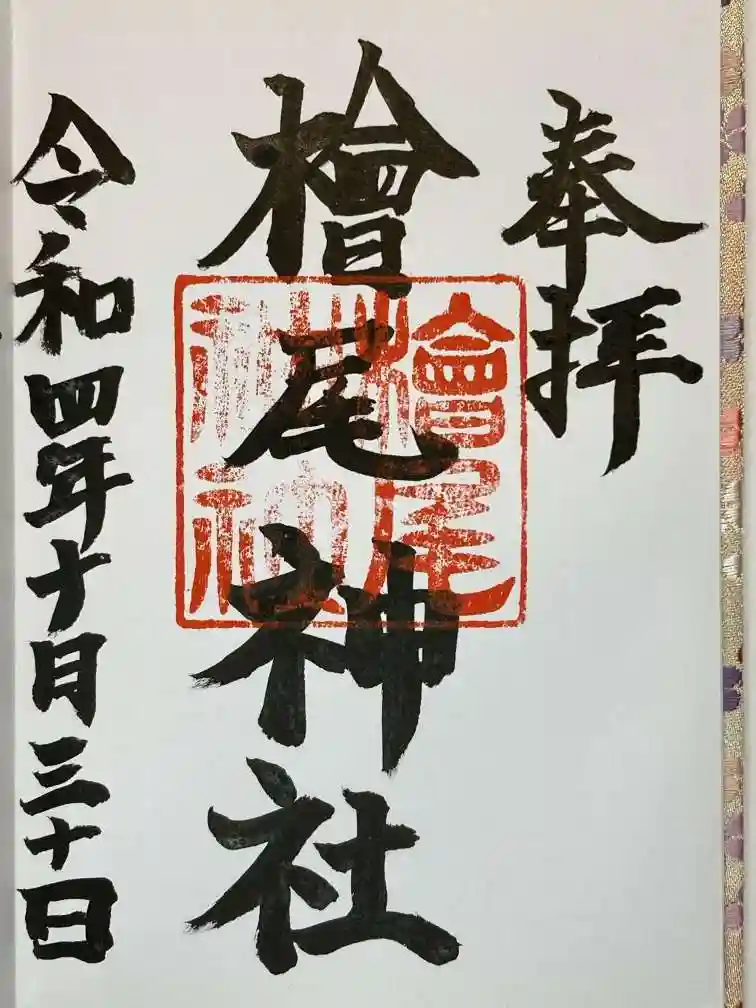 奉拝
檜尾神社
檜尾
神社
令和四年十月三十日